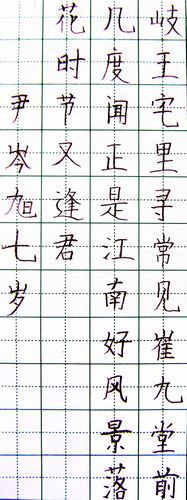 岐王宅里寻常见崔九堂前
几度闻正是江南好风景落
花时节又逢君
尹岑旭七岁